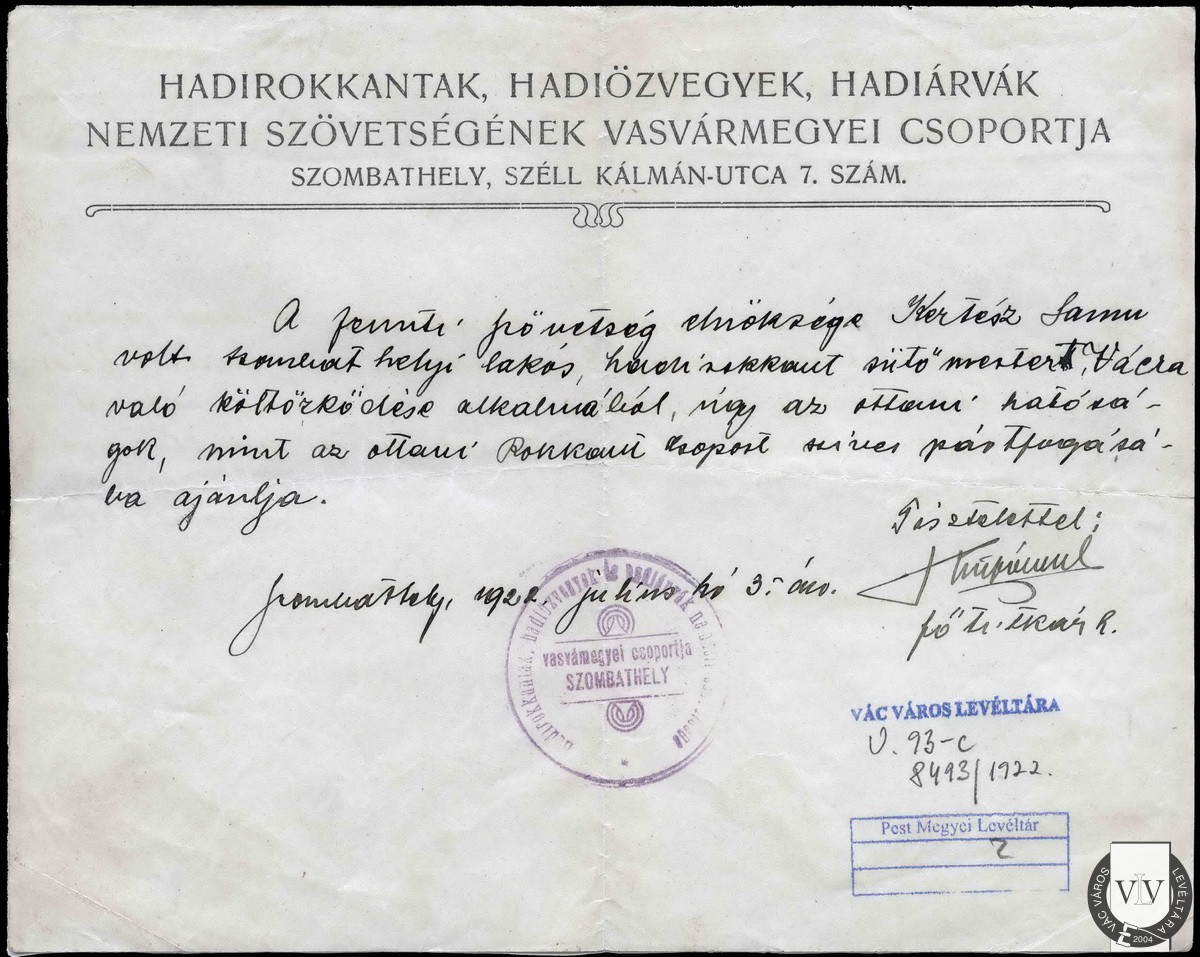 HADIROKKANTAK, HADIÖZVEGYEK, HADIÁRVÁK
NEMZETI SZÖVETSÉGÉNEK VASVÁRMEGYEI CSOPORTJA
SZOMBATHELY, SZÉLL KÁLMÁN-UTCA 7. SZÁM.
A fennti szövetség elnöksége Kertész Samu
volt szombathelyi lakós, hadirokkant sütőmestert, Vácra
való költözködése alkalmából, úgy az ottani hatósá-
gok, mint az ottani Rokkant csoport szives pártfogásá-
ba ajánlja.
Tisztelettel:
főtitkár h.
Szombathely, 1922 július hó 3.-án.
hadirokkantak, hadiözvegyek és hadiárvák
vasvámegyei csoportja
SZOMBATHELY
VÁC VÁROS LEVÉLTÁRA
V. 93-c
8493/1922.
Pest Megyei Levéltár
2
VÁC VÁROS LEVÉLTÁRA
VLV
2004